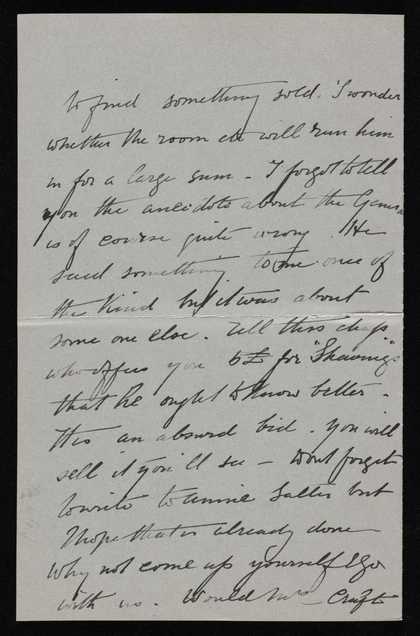 to find something sold. I wonder
whether the room etc will run him
in for a large sum - I forgot to tell
you the anecdote about the
is of course quite wrong. He
said something to me once of
the kind but it was about
some one else. Tell this chap
who offers you 6£ for "Shavings"
that he ought to know better -
its an absurd bid. You will
sell it you'll see - Dont forget
to write to Annie Salter but
I hope that is already done
Why not come up yourself & go
with us. Would Mrs Craft